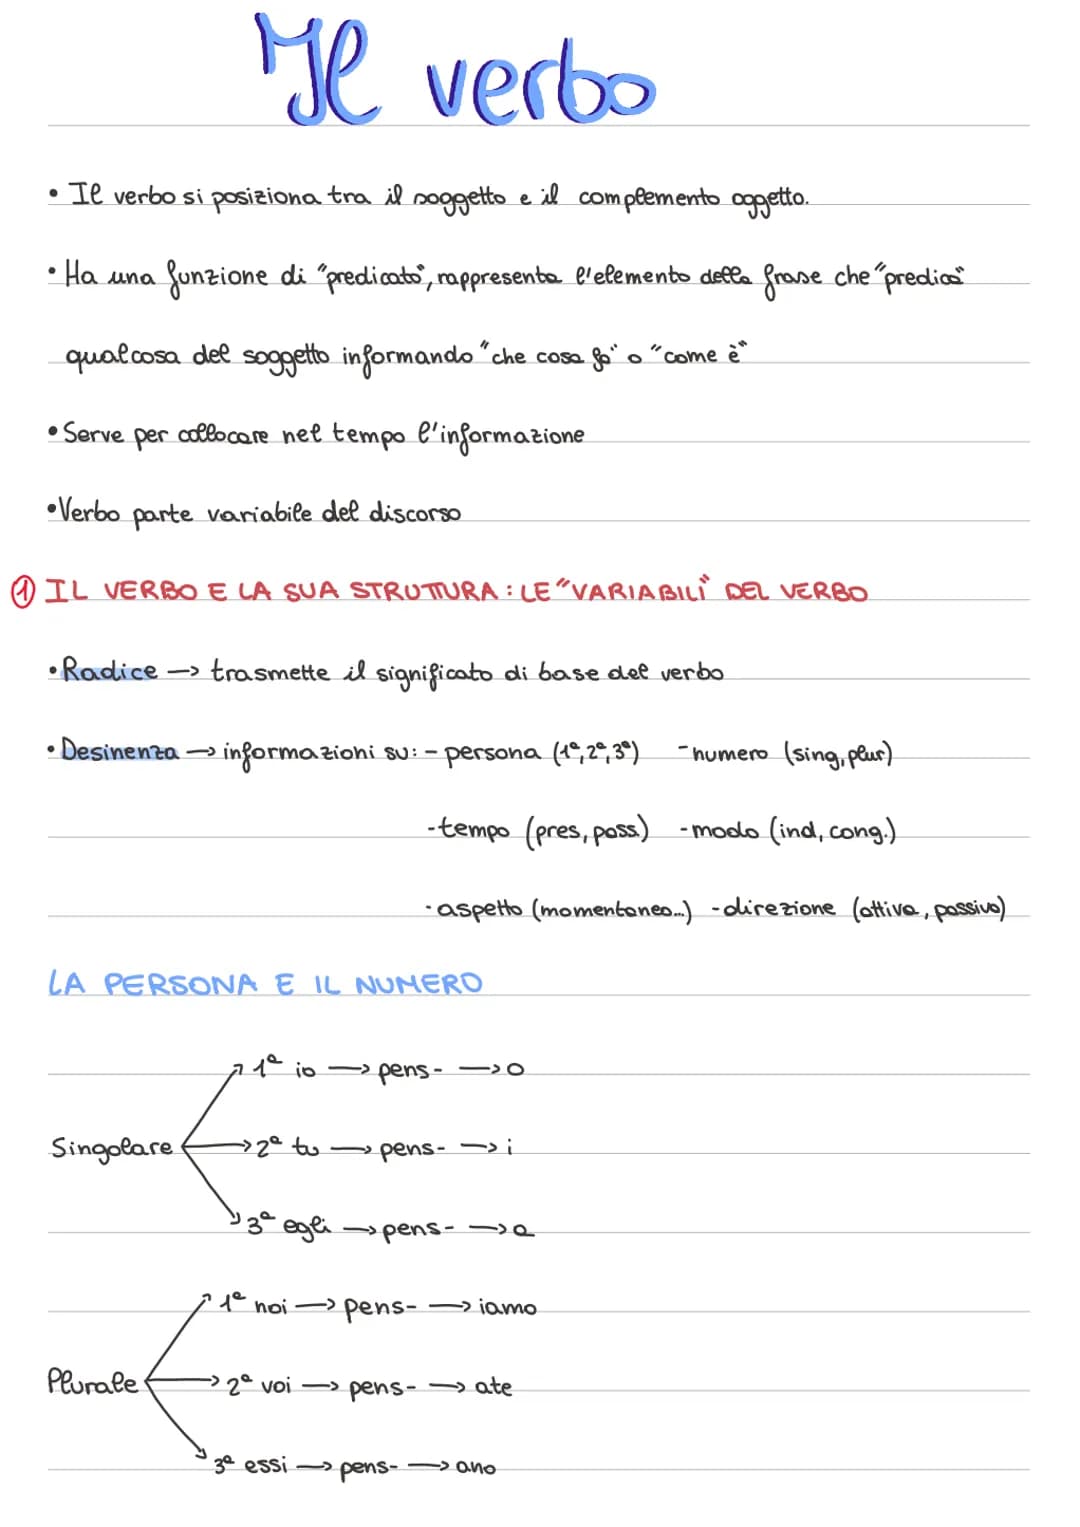 Il verbo
• Il verbo si posiziona tra il soggetto e il complemento oggetto.
• Ha una funzione di "predicato", rappresenta l'elemento della frase che "predica"
qualcosa del soggetto informando "che cosa fa" o "come è"
• Serve per collocare nel tempo l'informazione
• Verbo parte variabile del discorso
① IL VERBO E LA SUA STRUTTURA: LE "VARIABILI" DEL VERBO
• Radice → trasmette il significato di base del verbo
• Desinenza → informazioni su: - persona (1ª, 2ª, 3ª) - numero (sing, plur)
- tempo (pres, pass.) - modo (ind, cong.)
- aspetto (momentaneo...) - direzione (attiva, passiva)
LA PERSONA E IL NUMERO
1ª io → pens- → o
Singolare → 2ª tu → pens- → i
3ª egli → pens- → a
1ª noi → pens- → iamo
Plurale → 2ª voi → pens- → ate
3ª essi → pens- → ano